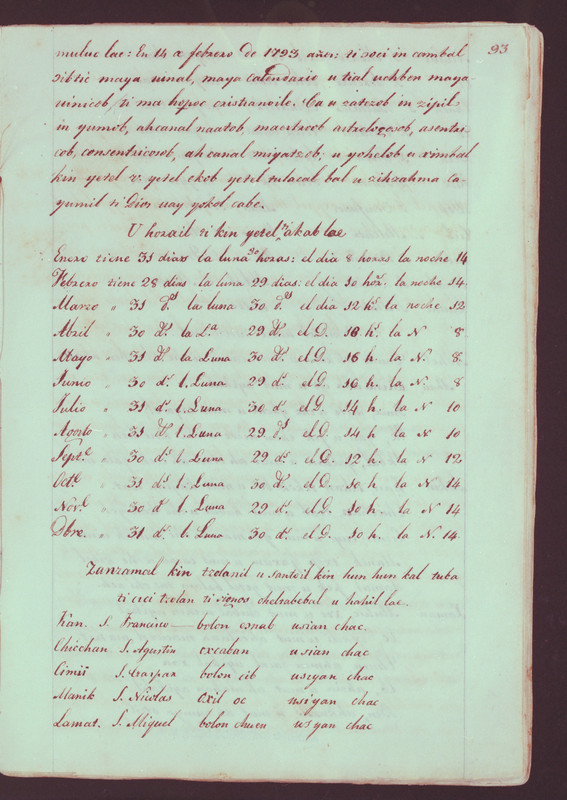 93
muluc lae: En 14 a febrero de 1793 años: ti soci in cambal
sibtic maya uinal, maya calendario u tial uchben maya
uinicob, ti ma hopoc cristianoile. Ca u satezob in zipil
in yumob, ahcanal naatob, maestrob astrologosob,
cob, consentricosob, ah canal miyatzob, u yohelob u ximbal
kin yetel u. yetel ekob yetel tulacal bal u zihzahma ca
yumil ti Dios uay yokol cabe.
U horail ti kin yetel ti akab lae
Enero tiene 31 dias la luna 30 horas: el dia 8 horas la noche 14
Febrero tiene 28 dias la luna 29 dias: el dia 10 hors. la noche 14.
Marzo " 31 ds. la luna 30 ds. el dia 12 hs. la noche 12
Abril " 30 ds. la La. 29 ds. el D. 16 hs. la N 8
Mayo " 31 ds. la Luna 30 ds. el D. 16 h. la N. 8.
Junio " 30 ds. l. Luna 29 ds. el D. 16 h. la N. 8
Julio " 31 ds. l. Luna 30 ds. el D. 14 h. la N 10
Agosto " 31 ds. l. Luna 29 ds. el D. 14 h la N 10
Septe. " 30 ds. l. Luna 29 ds. el D. 12 h. la N 12
Octe. " 31 ds. l. Luna 30 ds. el D. 10 h la N 14
Nove. " 30 ds. l. Luna 29 ds. el D. 10 h. la N 14
Dbre. " 31 ds. l. Luna 30 ds. el D. 10 h. la N. 14.
Zanzamal kin tzolanil u santoil kin hun hun kal tuba
ti tzolan ti signos u hahil lae.
Kan. S. Francisco bolon esnab usian chac.
Chicchan S. Agustin oxcaban usian chac
Cimii S. Gaspar bolon cib usiyan chac
Manik S. Nicolas oxil oc usiyan chac
Lamat. S. Miguel bolon chuen usyan chac